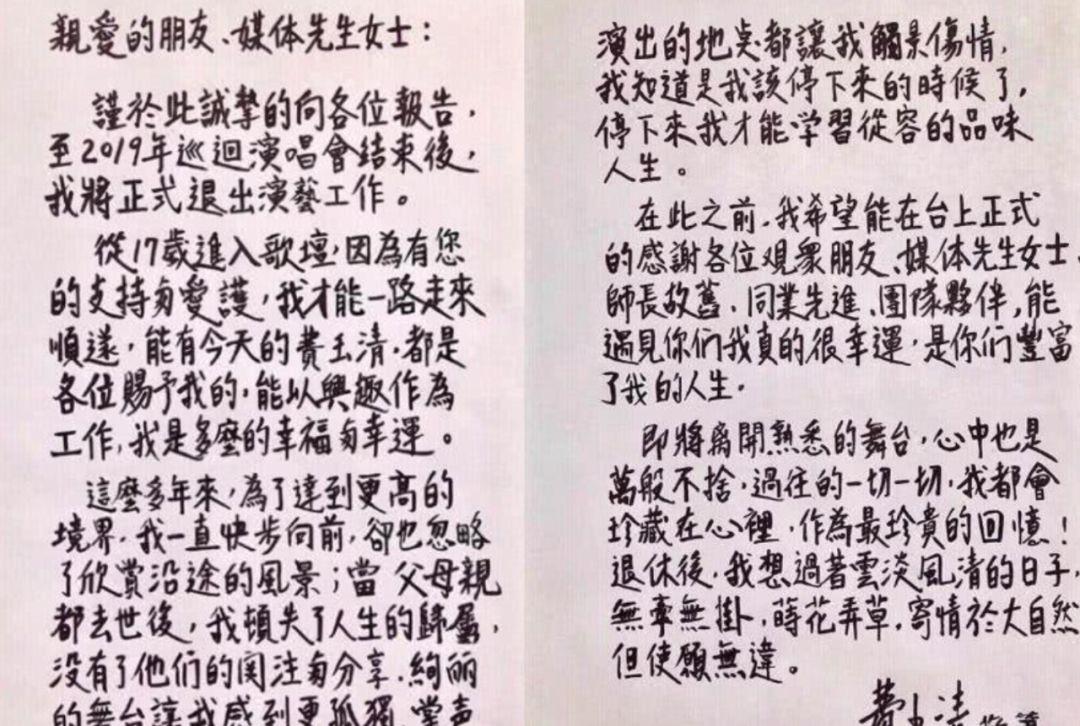 親愛的朋友、媒体先生女士：
謹於此誠摯的向各位報告，
至2019年巡迴演唱會結束後，
我將正式退出演藝工作。
從17歲進入歌壇，因為有您
的支持与愛護，我才能一路走來
順遂，能有今天的費玉清，都是
各位賜予我的，能以興趣作為
工作，我是多麼的幸福与幸運。
這麼多年來，為了達到更高的
境界，我一直快步向前，卻也忽略
了欣賞沿途的風景；當父母親
都去世後，我頓失了人生的歸屬，
没有了他們的関注与分享，絢丽
的舞台讓我感到更孤獨，掌声
演出的地点都讓我觸景傷情，
我知道是我該停下來的時候了，
停下來我才能学習從容的品味
人生。
在此之前，我希望能在台上正式
的感謝各位观眾朋友、媒体先生女士、
師長故舊、同業先進、團隊夥伴，能
遇見你们我真的很幸運，是你们豐富
了我的人生．
即將离開熟悉的舞台，心中也是
萬般不捨，過往的一切一切，我都會
珍藏在心裡，作為最珍貴的回憶！
退休後，我想過著雲淡風清的日子，
無牽無掛，蒔花弄草，寄情於大自然
但使願無違。
費玉清